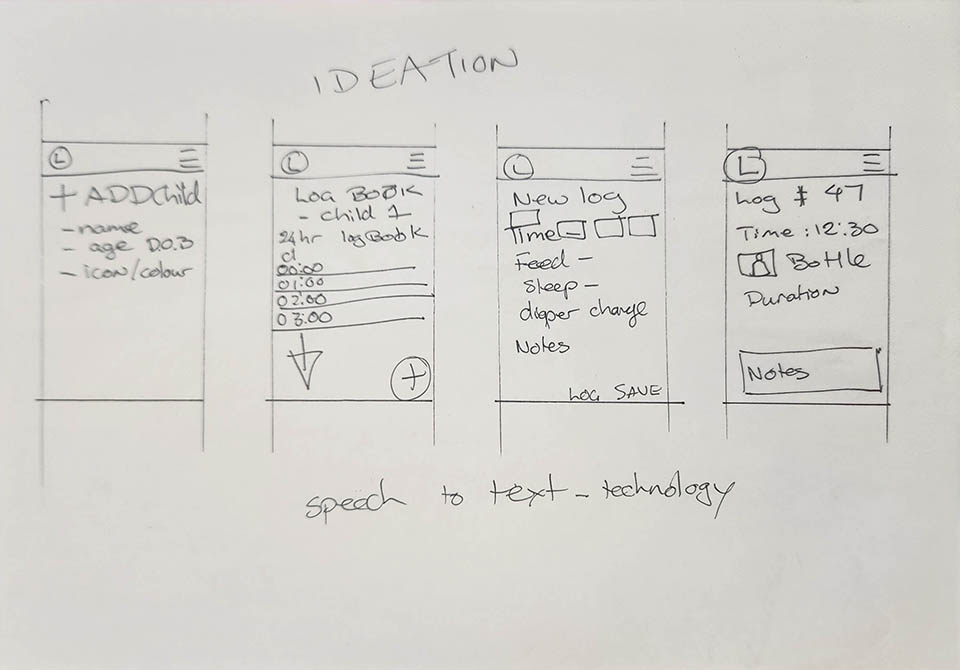 IDEATION
L
+ ADD Child
- name
- age D.O.B
- icon/colour
L
LOG BOOK
- child 1
24hr logBook
00:00
01:00
02:00
03:00
+
L
New log
Time
Feed -
Sleep -
diaper change
Notes
LOG SAVE
L
Log # 47
Time : 12:30
Bottle
Duration
Notes
speech to text - technology